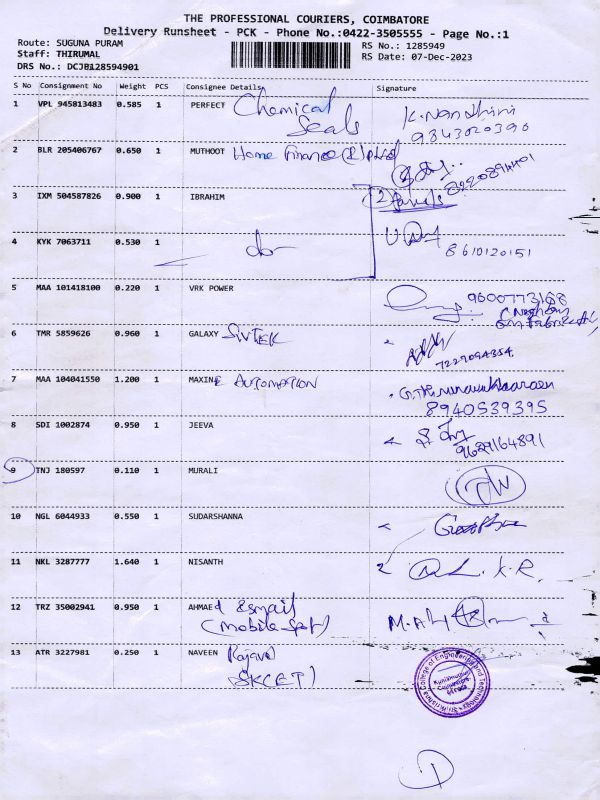 THE PROFESSIONAL COURIERS, COIMBATORE
Delivery Runsheet - PCK - Phone No.:0422-3505555 - Page No.:1
Route: SUGUNA PURAM
RS No.: 1285949
Staff: THIRUMAL
RS Date: 07-Dec-2023
DRS No.: DCJB128594901
S No Consignment No Weight PCS Consignee Details Signature
1 VPL 945813483 0.585 1 PERFECT Chemical Seals K. Nandhini 9843020390
2 BLR 205406767 0.650 1 MUTHOOT Home Finance
3 IXM 504587826 0.900 1 IBRAHIM
4 KYK 7063711 0.530 1 8610120151
5 MAA 101418100 0.220 1 VRK POWER 9600773168
6 TMR 5859626 0.960 1 GALAXY 7229094354
7 MAA 104041550 1.200 1 MAXINE AUTOMATION 8940539395
8 SDI 1002874 0.950 1 JEEVA 9629164891
9 TNJ 180597 0.110 1 MURALI
10 NGL 6044933 0.550 1 SUDARSHANNA
11 NKL 3287777 1.640 1 NISANTH K.R.
12 TRZ 35002941 0.950 1 AHMAED Esmail
(Mobile Spot)
13 ATR 3227981 0.250 1 NAVEEN
(SKCET)
Sri Krishna College of Engineering and Technology
Kuniamuthur
Coimbatore